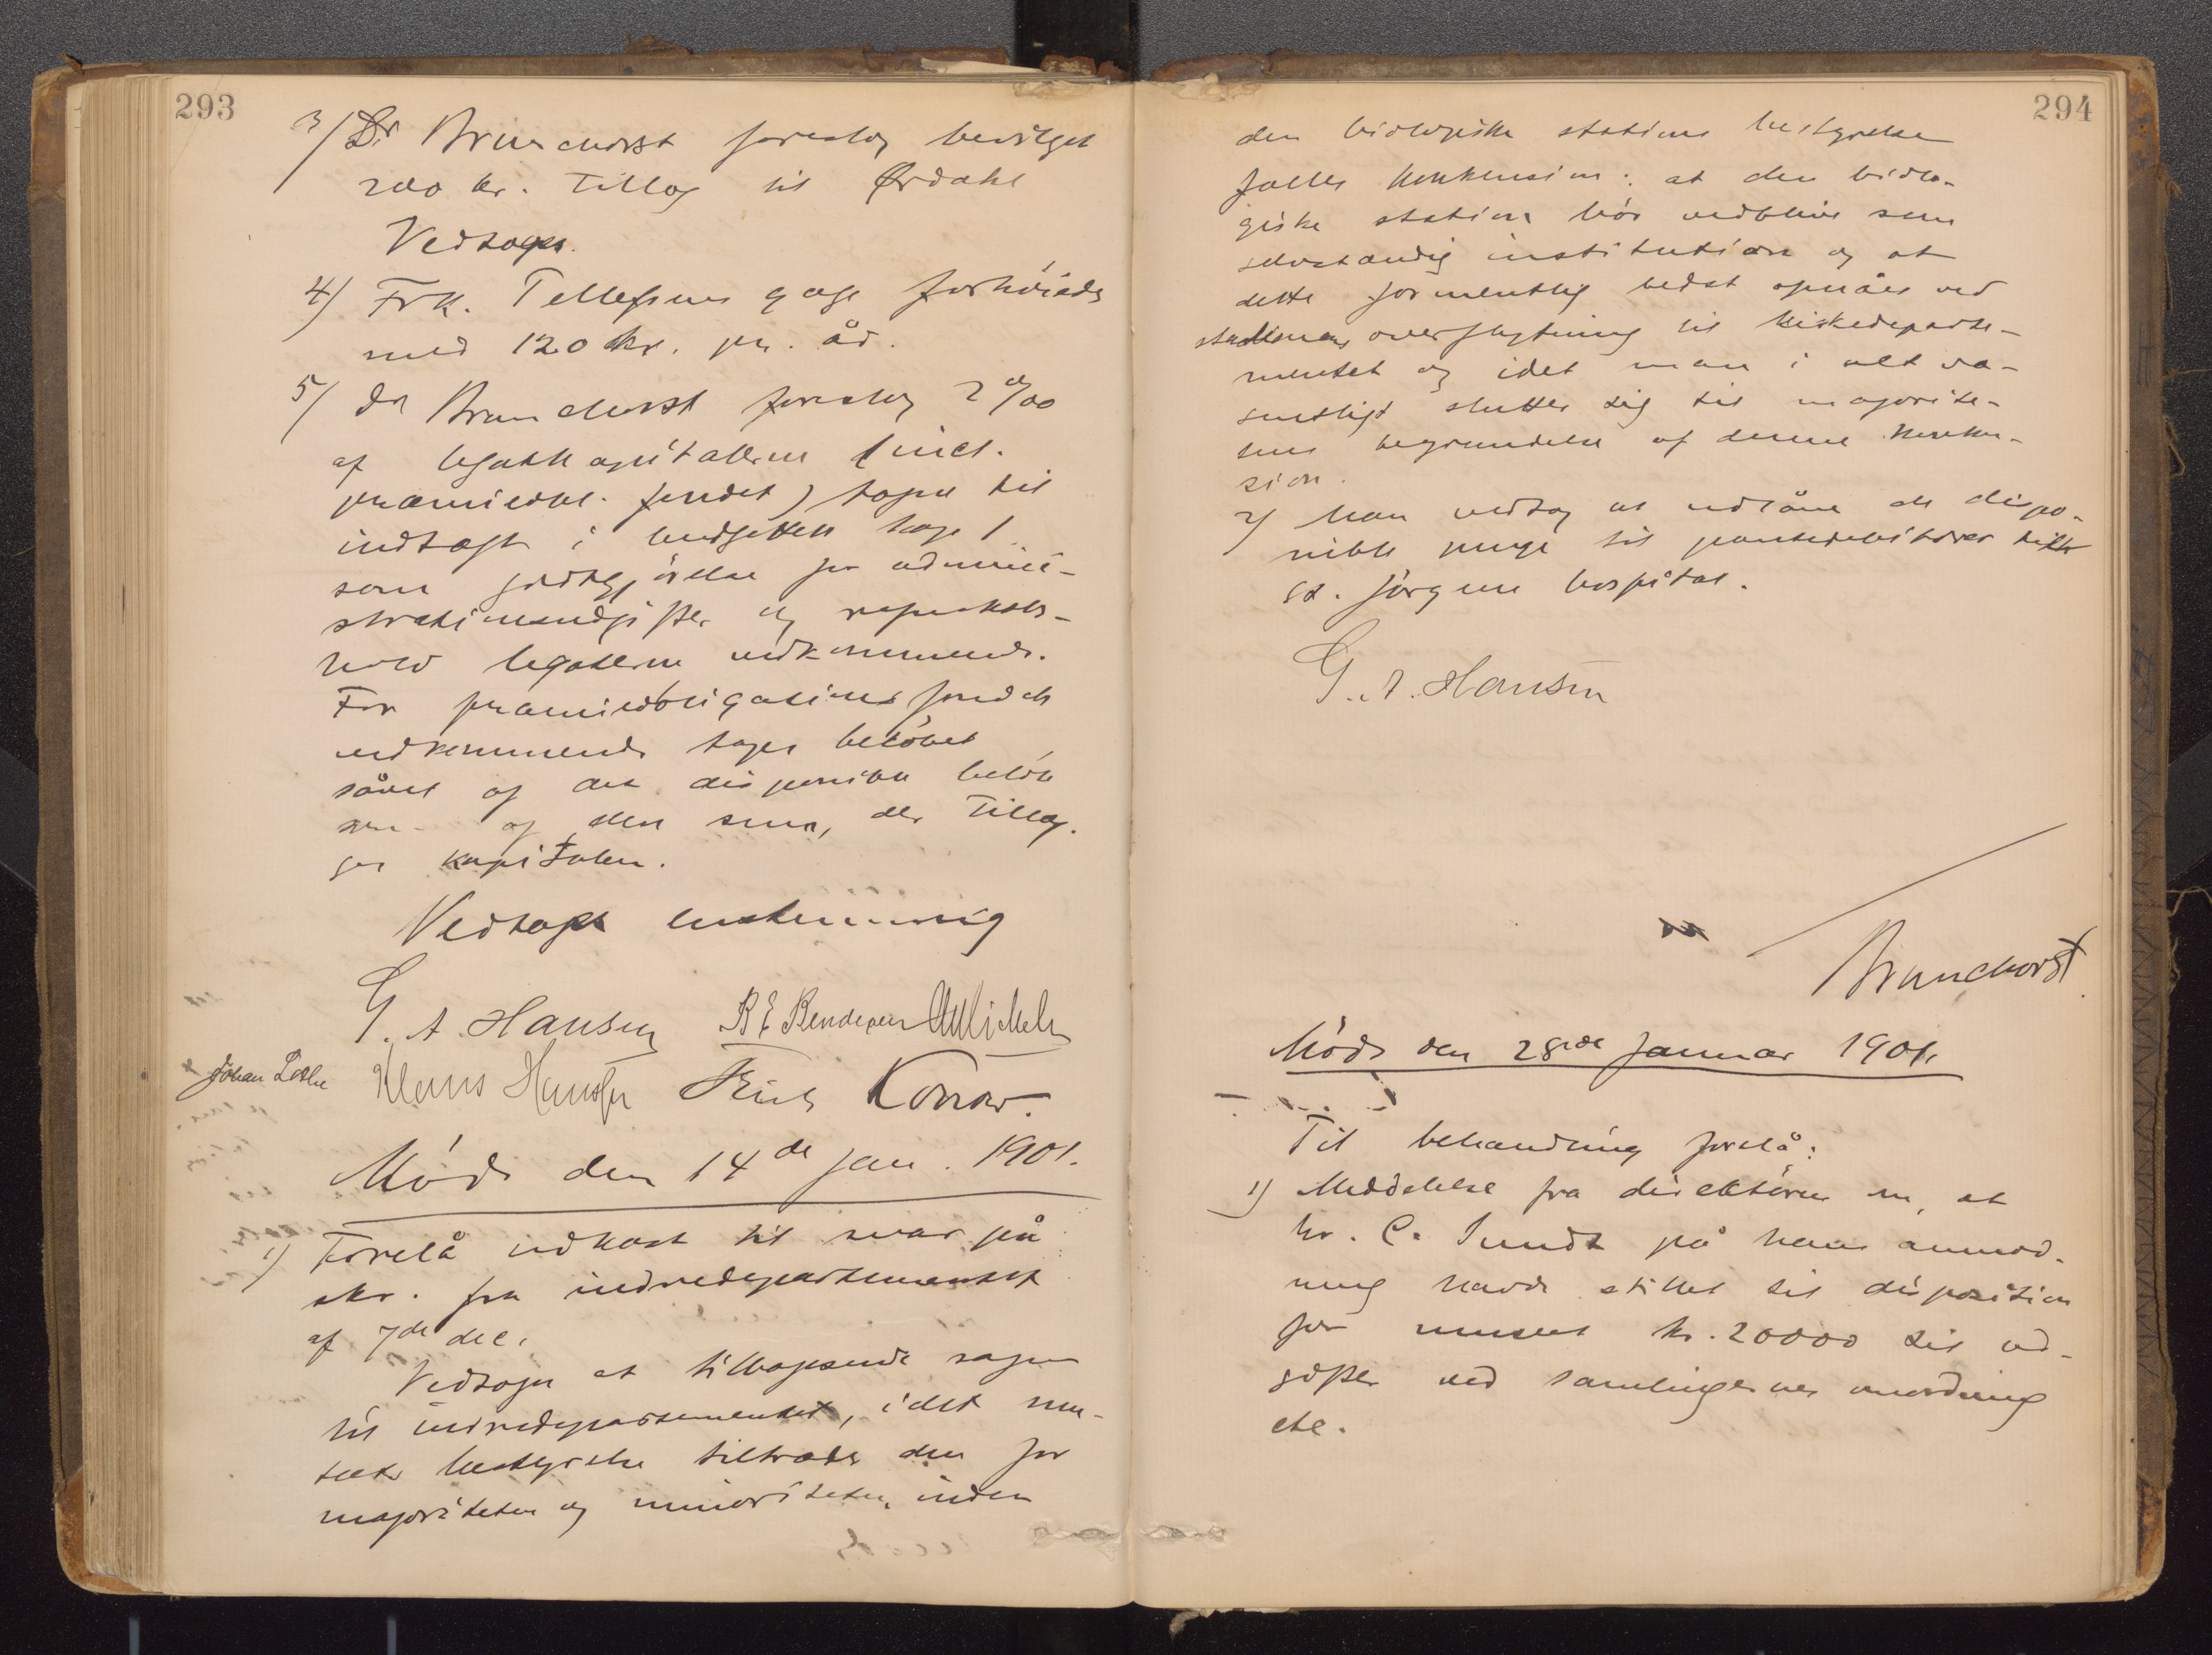 293
3/ Dr Brunchorst foreslog bevilget
200 kr. tillæg til Ørdahl
Vedtoges.
4) Frk. Tellefsens gage forhöiedes
med 120 kr. pr. år.
5/ Dr Brunchorst foreslog 2 %
af legatkapitalerne (incl.
præmieobl. fondet) tages til
indtægt i budgettets kap 1
som godtgjörelse for admini-
strationsudgifter og regnskabs-
hold legaterne vedkommende.
For præmieobligationsfondets
vedkommende tages belöbet
såvel af det disponible belöb
som af den sum, der tillæg-
ges kapitalen.
Vedtoges enstemmig
G. A. Hansen B E Bendixen
Johan Lothe Klaus Hanssen Fredr Konow.
Möde den 14de jan. 1901.
1) Forelå udkast til svar på
skr. fra indredepartementet
af 7de dec.
Vedtoges at tilbagesende sagen
til indredepartementet, idet mu-
sets bestyrelse tiltræder den for
majoriteten og minoriteten inden
294
den biologiske stations bestyrelse
fælles konklusion: at den biolo-
giske station bör vedblive som
selvstændig institution og at
dette formentlig bedst opnåes ved
stationens overflytning til kirkedeparte-
mentet og idet man i alt væ-
sentligt slutter sig til majorite-
tens begrundelse af denne konklu-
sion.
2) Man vedtog at udlåne de dispo-
nible penge til pantedebitorer
St. Jörgens hospital.
G. A. Hansen
Brunchorst
Möde den 28de januar 1901.
Til behandling forelå:
1) Meddelelse fra direktören om, at
hr. C. Sundt på hans anmod-
ning havde stillet til disposition
for museet kr. 20000 til ud-
gifter ved samlingernes anordning
etc.